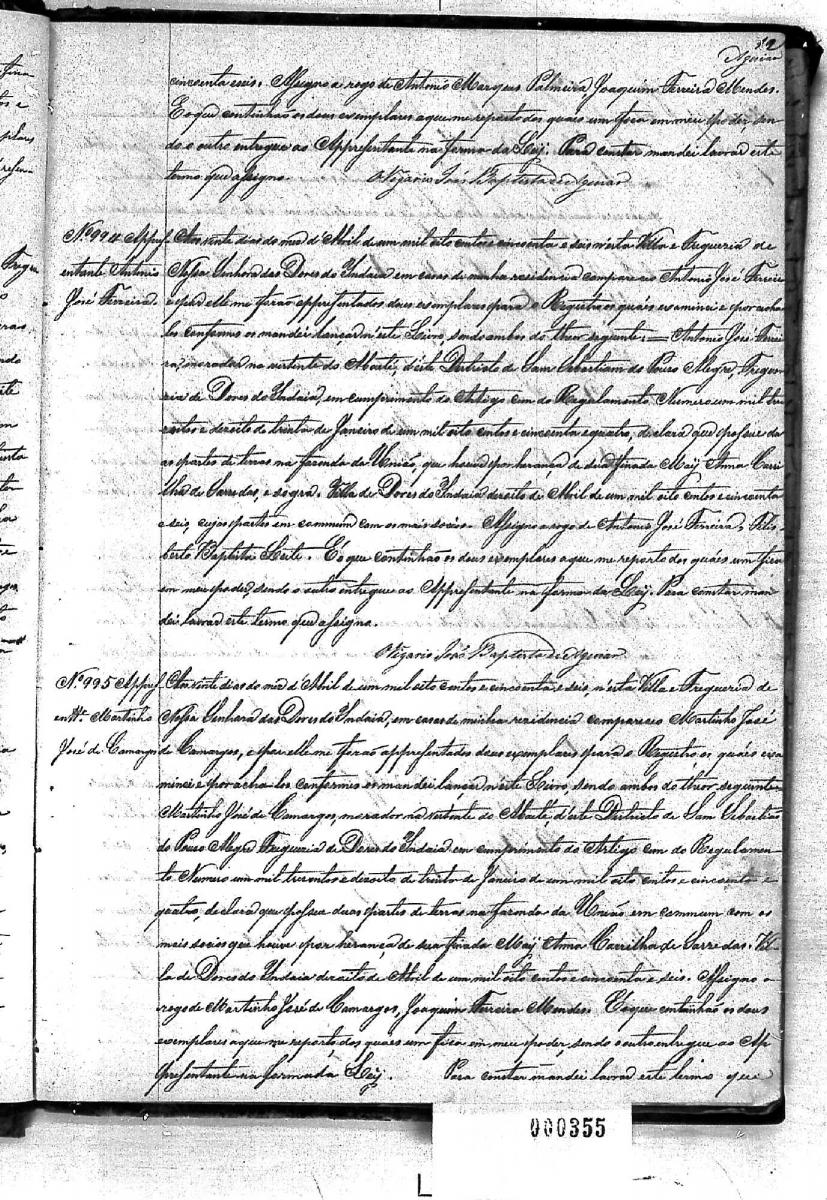 52
Azevedo
cincoenta e seis. Assigno a rogo de Antonio Marques Palmeira Joaquim Ferreira Mendes.
E o que continhão os dous exemplares a que me reporto dos quaes um fica em meu poder sen
do o outro entregue ao Appresentante na forma da Ley. Para constar mandei lavrar este
termo que assigno. O Vigario José Baptista de Azevedo
Nº 994 Appres
entante Antonio
José Ferreira.
Aos vinte dias do mez d'Abril de um mil oito centos e cincoenta e seis n'esta Villa e Freguezia de
Nossa Senhora das Dores do Indaiá em casas de minha residencia compareceo Antonio José Ferrei
e por elle me forão appresentados dous exemplares para o Registro os quáes examinei e por acha
los conformes os mandei lançar n'este Livro, sendo ambos do theor seguinte: = Antonio José Ferrei
ra, morador na vertente do Marte, d'este Districto de Sam Sebastiam do Pouso Alegre, Fregue
zia de Dores do Indaiá, em cumprimento do Artigo cem do Regulamento Numero um mil tre
zentos e dezoito de trinta de Janeiro de um mil oito centos e cincoenta e quatro, declara que possue du
as partes de terras na fazenda da União, que houve por herança de sua finada Maÿ Anna Carri
lha de Sarredas, e sogra. Villa de Dores do Indaia dezoito de Abril de um mil oito centos e cincoenta
e seis, cujas partes em commum com os mais socios. Assigno a rogo de Antonio José Ferreira, Felis
berto Baptista Leite. E o que continhão os dous exemplares a que me reporto dos quáes um fica
em meu poder, sendo o outro entregue ao Appresentante na forma da Ley. Para constar man
dei lavrar este termo que assigno.
O Vigario José Baptista de Azevedo
Nº 995 Appres
entte. Martinho
José de Camargos
Aos vinte dias do mez d'Abril de um mil oito centos e cincoenta e seis, n'esta Villa e Freguezia de
Nossa Senhora das Dores do Indaiá, em casas de minha rezidencia compareceo Martinho José
de Camargos, e por elle me forão appresentados dous exemplares para o Registro os quáes exa
minei e por acha-los conformes os mandei lançar n'este Livro, sendo ambos do theor seguinte =
Martinho José de Camargos, morador na vertente do Marte d'este Districto de Sam Sebastião
do Pouso Alegre Freguezia de Dores do Indaiá em cumprimento do Artigo cem do Regulamen
to Numero um mil trezentos e dezoito de trinta de Janeiro de um mil oito centos e cincoenta e
quatro, declara que possue duas partes de terras na fazenda da União em commum com os
mais socios que houve por herança de sua finada Maÿ Anna Carrilha de Sarredas. Vil
la de Dores do Indaia dezoito de Abril de um mil oito centos e cincoenta e seis. Assigno a
rogo de Martinho José de Camargos, Joaquim Ferreira Mendes. E o que continhão os dous
exemplares a que me reporto dos quaes um fica em meu poder, sendo o outro entregue ao Ap
presentante na forma da Ley. Para constar mandei lavrar este termo que
000355
L